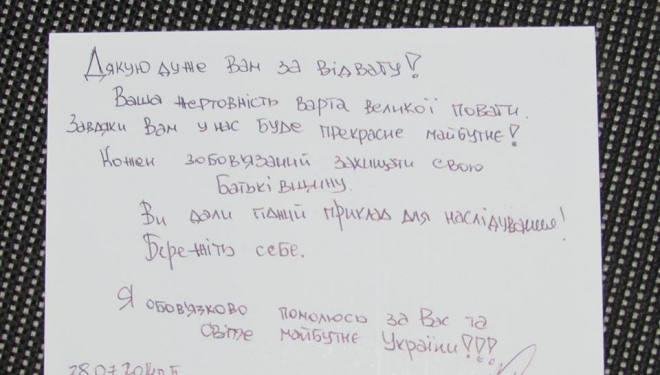 Дякую дуже Вам за відвагу!
Ваша жертовність варта великої поваги.
Завдяки Вам у нас буде прекрасне майбутнє!
Кожен зобов'язаний захищати свою
Батьківщину.
Ви дали гідний приклад для наслідування!
Бережіть себе.
Я обов'язково помолюсь за Вас та
світле майбутнє України!!!
28.07.2014р.Б